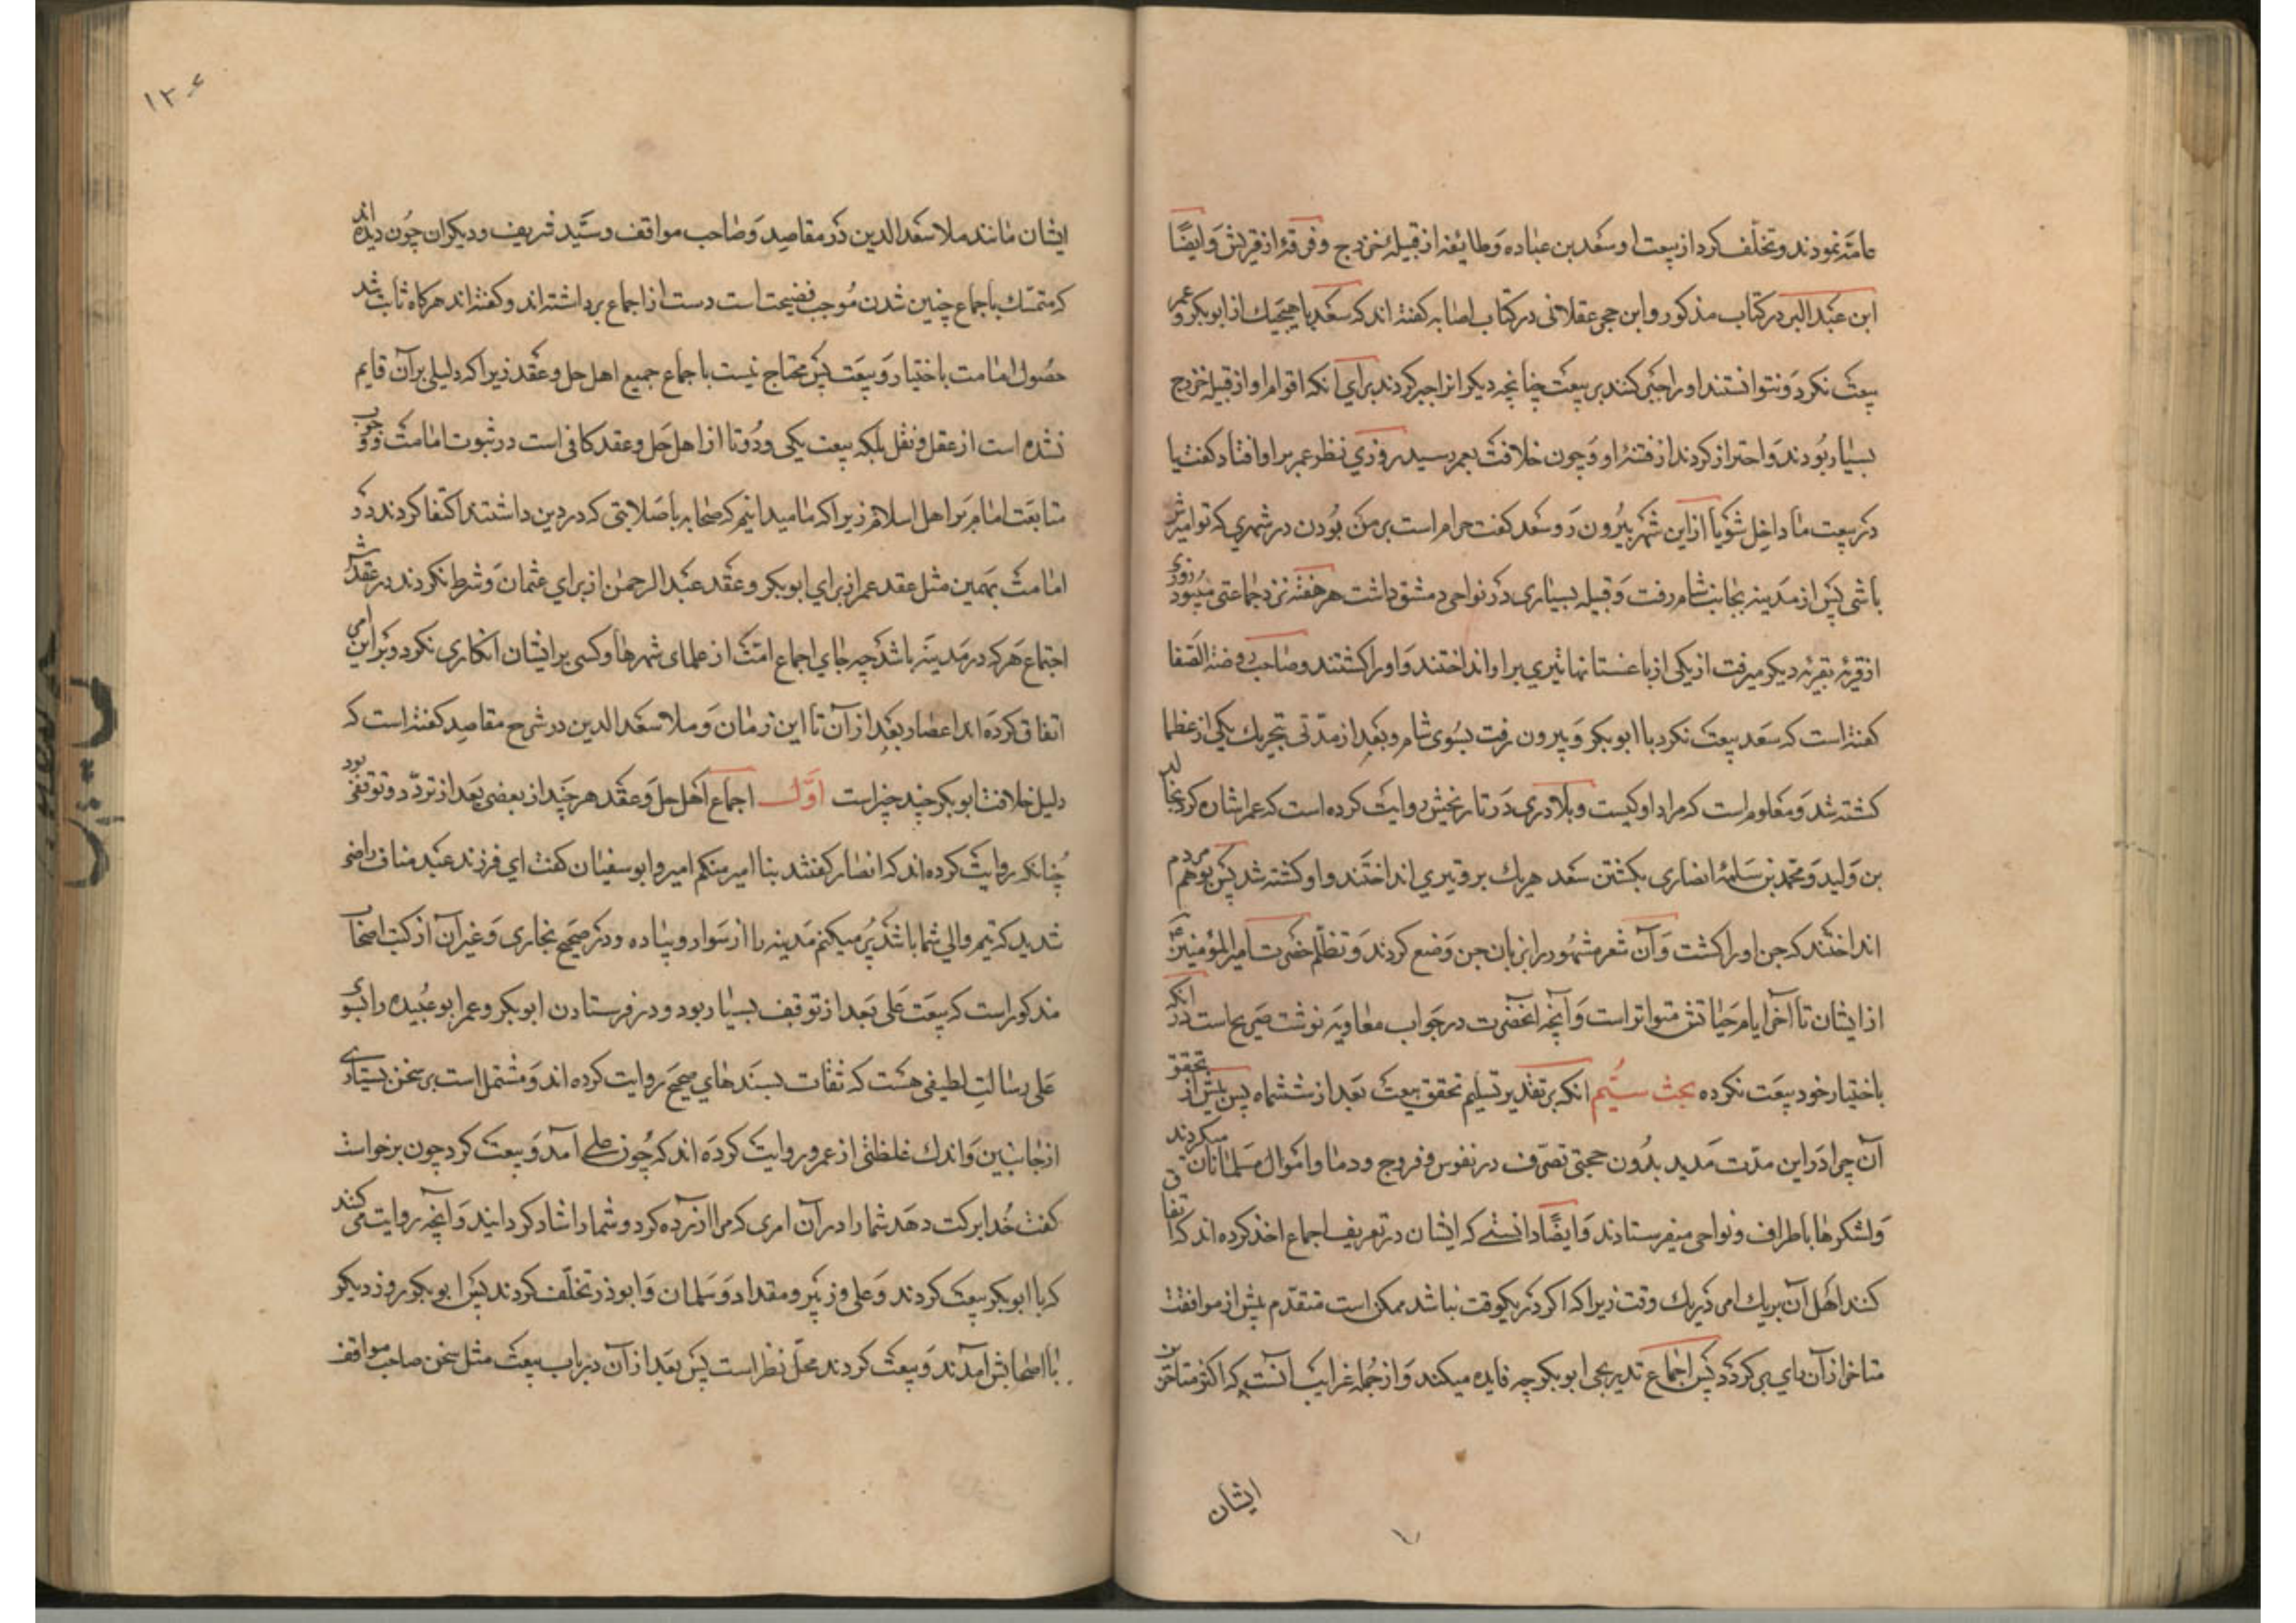 عامّه نمودند و تخلّف کرد از بیعت او سعد بن عباده و طایفه از قبیلهٔ خزرج و فرقهٔ از قریش و ایضًا
ابن عبد البر در کتاب مذکور و ابن حجر عقلانی در کتاب اصابه گفته اند که سعد با هیچیك از ابوبکر و عمر
بیعت نکرد و نتوانستند او را جبر کنند بر بیعت چنانچه دیگرانرا جبر کردند برای آنکه اقوام او از قبیله خزرج
بسیار بودند و احتراز کردند از فتنهٔ او و چون خلافت بعمر رسید روزی نظر عمر بر او افتاد گفت یا
در بیعت ما داخل شو یا از این شهر بیرون رو سعد گفت حرام است بر من بودن در شهری که تو امیرش
باشی پس از مدینه بجانب شام رفت و قبیله بسیاری در نواحی دمشق داشت هر هفته نزد جماعتی میبود روزی
از قریهٔ بقریهٔ دیگر میرفت از یکی از باغستانها تیری بر او انداختند و او را کشتند و صاحب روضة الصّفا
گفته است که سعد بیعت نکرد با ابوبکر و بیرون رفت بسوی شام و بعد از مدّتی بتحریك یکی از عظما
کشته شد و معلوم است که مراد او کیست و بلادری در تاریخش روایت کرده است که عمر اشاره کرد بخالد
بن ولید و محمد بن سلمهٔ انصاری بکشتن سعد هر یك بر وتیری انداختند و او کشته شد پس بوهم مردم
انداختند که جن او را کشت و آن شعر مشهور را بزبان جن وضع کردند و تظلّم حضرت امیر المؤمنین
از ایشان تا آخر ایام حیاتش متواتر است و آنچه آنحضرت در جواب معاویه نوشت صریحاست در آنکه
باختیار خود بیعت نکرده بحث سیُم آنکه بر تقدیر تسلیم تحقق بیعت بعد از ششماه پس پیش از تحقق
آن چرا در این مدّت مدید بدون حجتی تصرّف در نفوس و فروج و دما و اموال مسلمانان میکردند
و لشکرها باطراف و نواحی میفرستادند و ایضًا دانستی که ایشان در تعریف اجماع اخذ کرده اند که اتفاق
کنند اهل آن بر یك امر در یك وقت زیرا که اگر در یکوقت نباشد ممکن است متقدّم پیش از موافقت
متاخر از آن رای برگردد پس اجماع تدریجی ابوبکر چه فایده میکند و از جُمله غرایب آنست که اکثر متاخرین
ایشان
۱۳۰۶
ایشان مانند ملا سعد الدین در مقاصد و صاحب مواقف و سیّد شریف و دیگران چون دیده اند
که متمسّك باجماع چنین شدن موجب فضیحت است دست از اجماع برداشته اند و گفته اند هرگاه ثابت شد
حصول امامت باختیار و بیعت پس محتاج نیست باجماع جمیع اهل حل و عقد زیرا که دلیلی بر آن قایم
نشده است از عقل و نقل بلکه بیعت یکی و دوتا از اهل حل و عقد کافی است در ثبوت امامت و وجوب
متابعت امام بر اهل اسلام زیرا که ما میدانیم که صحابه با صلابتی که در دین داشتند اکتفا کردند در
امامت بهمین مثل عقد عمر از برای ابوبکر و عقد عبد الرحمن از برای عثمان و شرط نکردند در عقدش
اجتماع هر که در مدینه باشد چه جای اجماع امّت از علمای شهرها و کسی بر ایشان انکاری نکرد و بر این امر
اتفاق کرده اند اعصار بعد از آن تا این زمان و ملا سعد الدین در شرح مقاصد گفته است که
دلیل خلافت ابوبکر چند چیز است اوّل اجماع اهل حل و عقد هر چند از بعضی بعد از تردّد و توقفی بود
چنانکه روایت کرده اند که انصار گفتند منا امیر منکم امیر و ابوسفیان گفت ای فرزند عبد مناف راضی
شدید که تیم والی شما باشد پُر میکنم مدینه را از سوار و پیاده و در صحیح بخاری و غیر آن از کتب اصحاب
مذکور است که بیعت علی بعد از توقف بسیار بود و در فرستادن ابوبکر و عمر ابو عُبیده را بسوی
علی رسالت لطیفی هست که ثقات بسندهای صحیح روایت کرده اند و مشتمل است بر سخن بسیاری
از جانبین و اندك غلظتی از عمر و روایت کرده اند که چون علی آمد و بیعت کرد چون برخواست
گفت خُدا برکت دهد شما را در آن امری که مرا آزرده کرد و شما را شاد گردانید و آنچه روایت می کنند
که با ابوبکر بیعت کردند و علی و زبیر و مقداد و سلمان و ابوذر تخلّف کردند پس ابوبکر روز دیگر
با اصحابش آمدند و بیعت کردند محلّ نظر است پس بعد از آن در باب بیعت مثل سخن صاحب مواقف